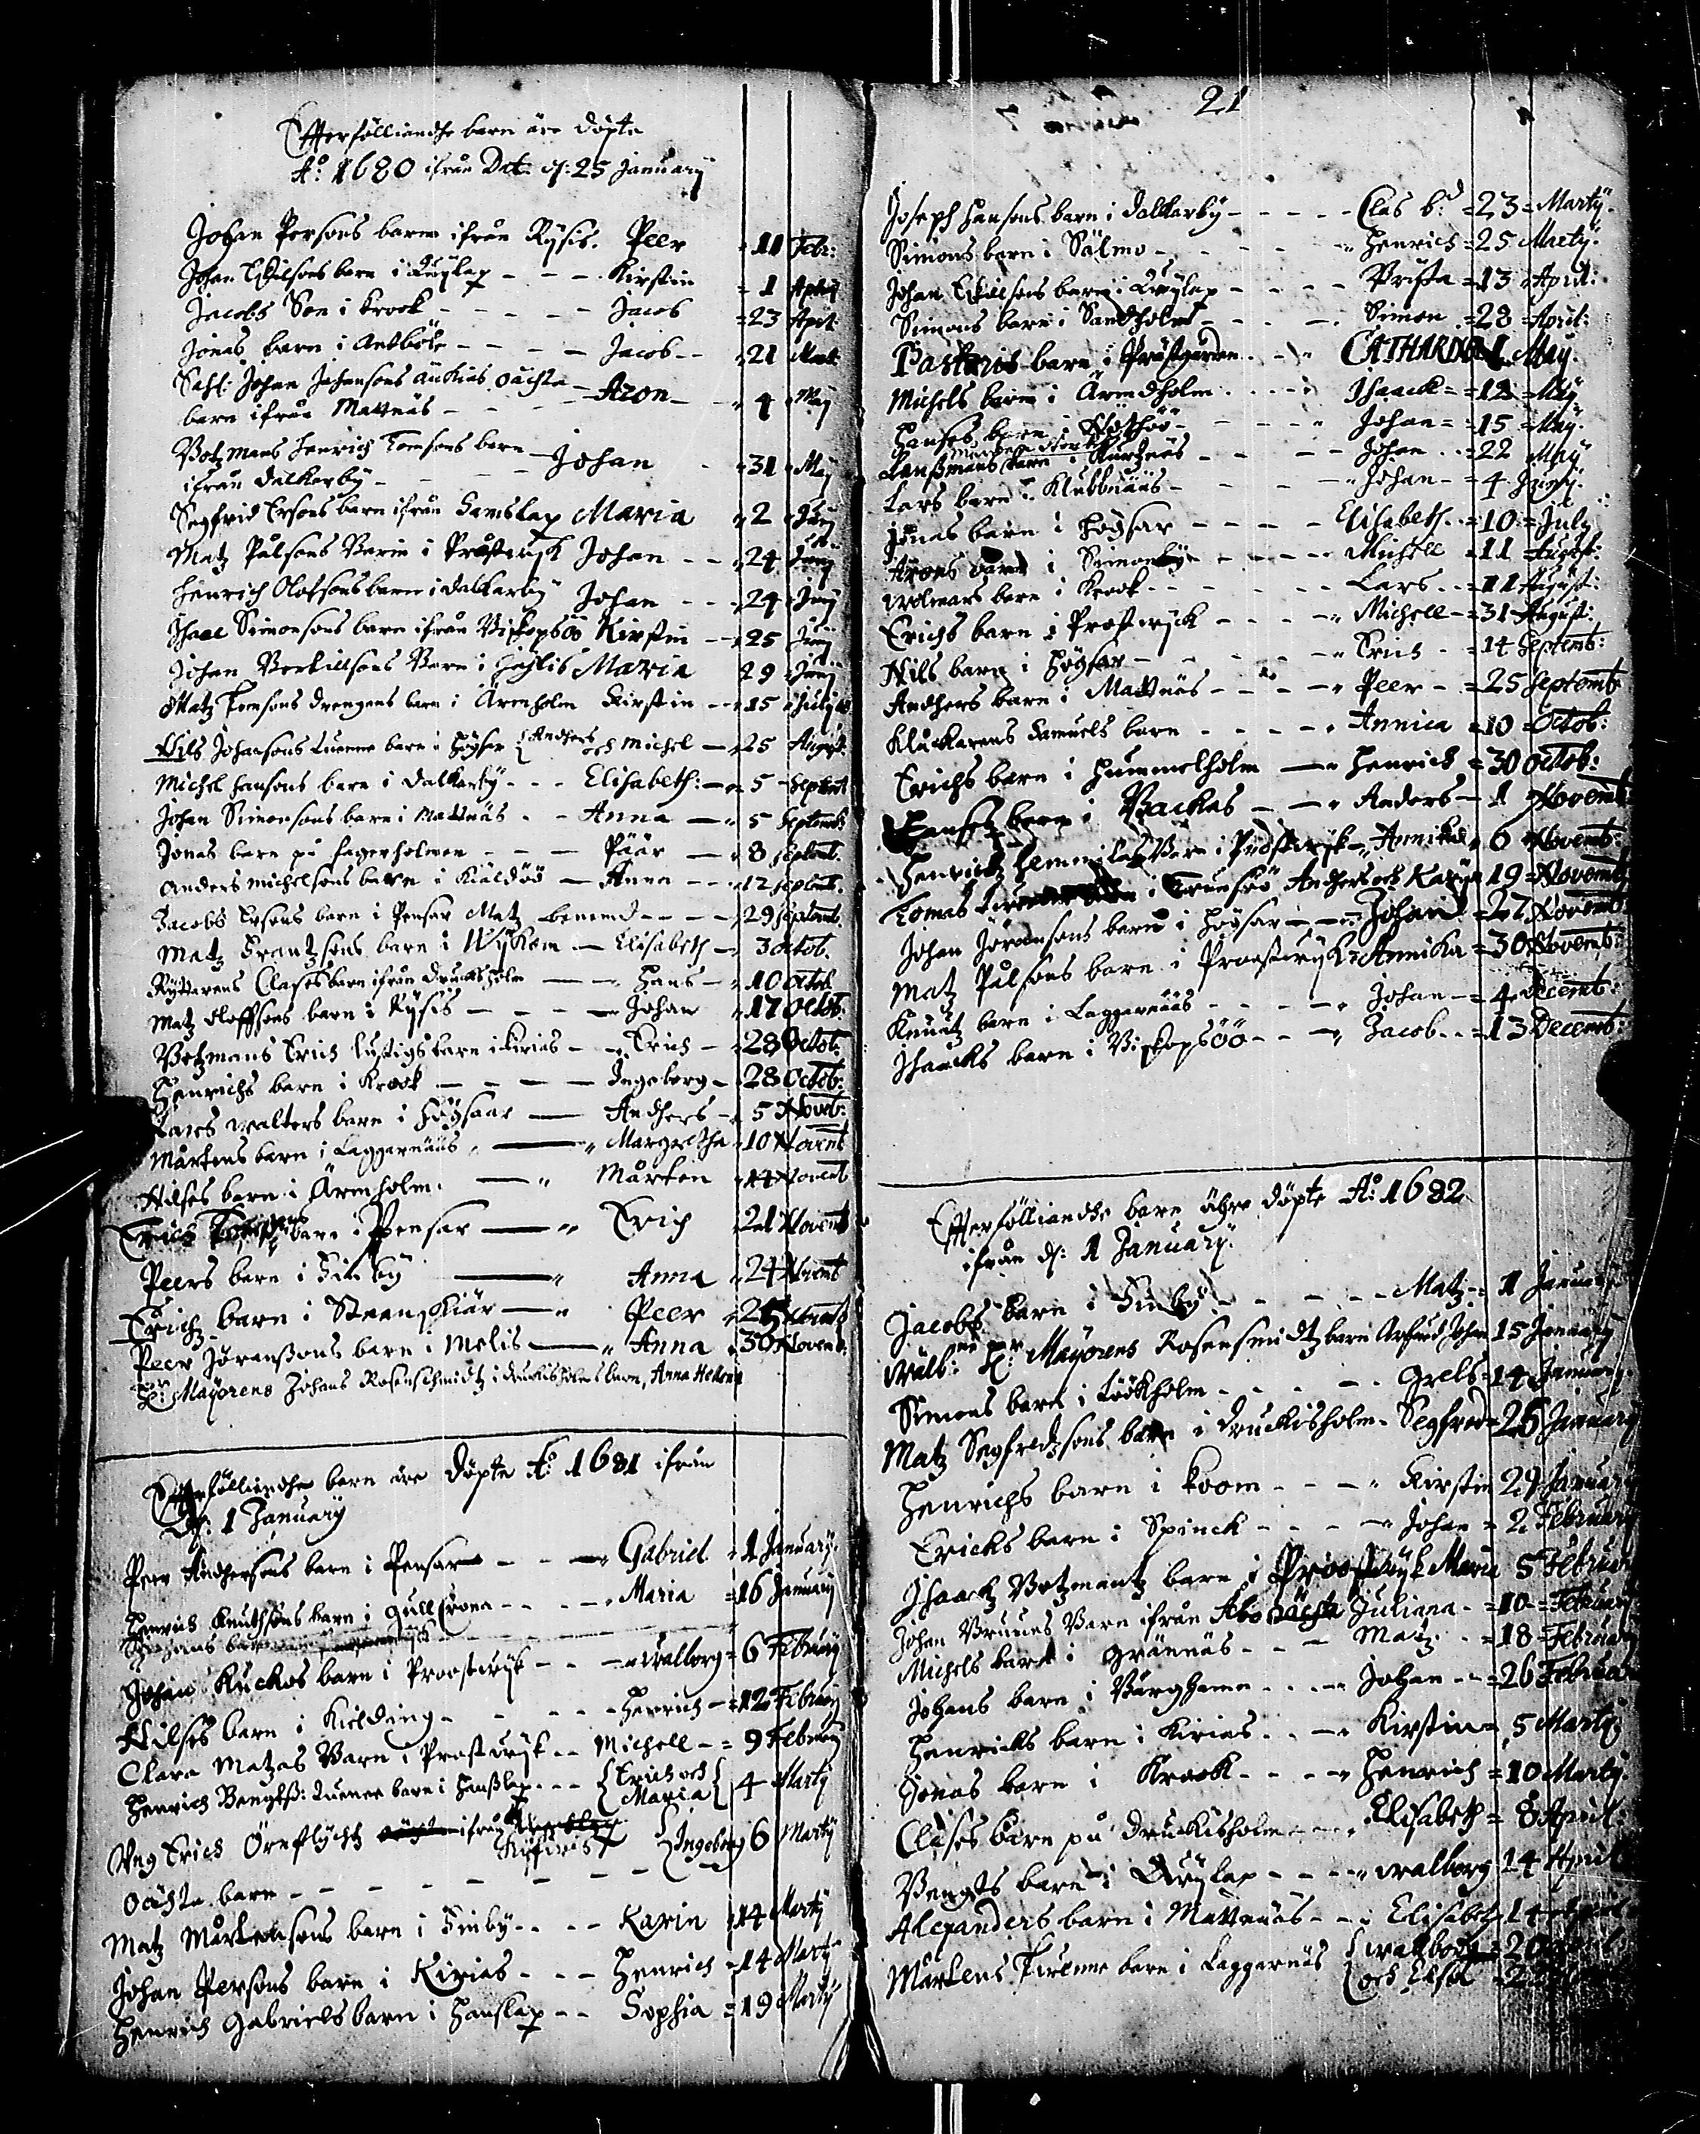 Effterfölliandhe barn äre döpte
Ao: 1680 ifrån Dat. d: 25 January
Johan Persons barn ifrån Rysis. Peer = 11 Febr:
Johan Eskilsons barn i Quÿlax - - - Kirstin = 1 Aprily
Jacobs Son i krook - - - - - Jacob = 23 April
Jonas barn i Antböle - - - - Jacob - - 21 Maii
Sahl: Johan Johansons änkias oächta
barn ifrån Mattnäs - - - Aron - - 4 Maij
Botzmans Henrich Tomsons barn
ifrån dalkarby - - - Johan - = 31 Maij
Segfrid Ersons barn ifrån Gamslax Maria = 2 Junij
Matz Pålsons Barn i Prostwijk Johan - - 24 Junij
Henrich Olofsons barn i dalkarby Johan - - 24 Junij
Isaac Simonsons barn ifrån Biskopsöö Kirstin - - 25 Junij
Johan Bertillsons Barn i Maria 29 Junij
Matz Tomsons drengens barn i Ärnholm Kirstin - - 15 Julij
Nils Johansons tuenne barn i Högsar { Andhers och Michel - 25 August:
Michel Hansons barn i dalkarbÿ - - - Elisabeth: - 5 Septemb
Johan Simonsons barn i Mattnäs - - Anna - 5 Septemb:
Jonas barn på Fagerholmen - - - Päär - 8 Septemb.
Anders Michelsons barn i Kiäldöö - Anna - - 12 Septemb.
Jacobs Ersons barn i Pensar Matz benemd - - - 29 Septemb.
Matz Frantzsons barn i Wÿkom - Elisabeth - 3 Octob.
Rÿttarens Clases barn ifrån druckisholm - Hans - 10 Octob
Matz Oloffsons barn i Rÿsis - - - Johan 17 Octob.
Botzmans Erich lustigs barn i kirias - - Erich - 28 Octob:
Henrichs barn i Krook - - - - Ingeborg - 28 Octob:
Lars walters barn i Högsaar - Andhers - 5 Novēb:
Mårtens barn i Laggarnääs - Margretha 10 Novemb
Nilses barn i Ärnholm. - Mårten 14 Novemb
Erich barn i Pensar - Erich 21 Novemb
Peers barn i Finbÿ - Anna 24 Novemb
Erichz barn i Stenskiär - Peer 25 Novemb
Peer Jöransons barn i Melis - Anna 30 Novemb.
H: Mayorens Johans Rosenschmidtz i druckisholms barn, Anna Helena
Effterfölliandhe barn äre döpte Ao 1681 ifrån
d: 1 January
Peer Andhersons barn i Pensar - - Gabriel 1 January.
Henrich Knuthsons barn i Gullkrona - - - Maria = 16 January
Johan Kuckos barn i Proostwÿk - - walborg = 6 February
Nilses barn i Kielding - - - - Henrich - = 12 February
Clara Matzas Barn i Prostwÿk - - Michell - = 9 February
Henrich Bengtss: tuenne barn i Hanslax - - { Erich och Maria { 4 Marty
Ung Erich Örneflÿchtz ifrån { Ingeborg 6 Marty
oächta barn - - - - - - -
Matz Mårtensons barn i Finbÿ - - - Karin 14 Marty
Johan Persons barn i Kirias - - - Henrich = 14 Marty
Henrich Gabriels barn i Hanslax - - Sophia = 19 Marty
21
Joseph Hansons barn i dalkarbÿ - - - - Clas b: = 23 = Martÿ.
Simons barn i Sälmo - - - - - Henrich = 25 Martÿ.
Johan Eskillsons barn i Quÿlax - - - - Brita = 13 April:
Simons barn i Sandholm - - - - Simon = 28 = April:
Pastoris barn i Prästgården - - - CATHARINA 1 Maÿ.
Michels barn i Ärnholm - - - Isaack = = 12 = Maÿ
Hanses barn i Nötthöö - - - - Johan = = 15 = Maÿ.
Länssmans barn i Kurtznäs - - - Johan - = 22 Maÿ
Lars barn i Klubbnääs - - - - Johan - = 4 Junÿ.
Jonas barn i Högsar - - - - Elisabeth - = 10 = July
Arons barn i Simonbÿ - - - - Michell = 11 = August:
Wolmars barn i Krook - - - - Lars - = 11 August:
Erichs barn i Prostwÿck - - - - Michell - = 31 August:
Nils barn i Högsar - - - - Erich - = 14 Septemb:
Andhers barn i Mattnäs - - - - Peer - = 25 Septemb
Kluckarens Samuels barn - - - - Annica = 10 = Octob:
Erichs barn i Hummelholm - Henrich = 30 Octob:
Hanses barn i Backas - - Anders - 1 Novemb
Henrichz Barn i Prostwÿk - Annika 6 Novemb:
Tomas i Trunsöö Andhers och Karin 19 = Novemb
Johan Jöransons barn i Högsar - - Johan = 27 Novemb:
Matz Pålsons barn i Proostwÿk - Annika = 30 Novemb:
Knutz barn i Laggarnääs - - - - Johan - = 4 Decemb:
Isaacks barn i Biskopsöö - - - Jacob - - = 13 Decemb:
Effterfölliandhe barn ähre döpte Ao: 1682
ifrån d: 1 January.
Jacobs barn i Finbÿ - - - - - Matz = 1 January
Wälb: H: Mayorens Rosensmidtz barn Arfwed Johan 15 January
Simons barn i Löökholm - - - - Grels = 14 January.
Matz Segfredzsons barn i druckisholm - Segfred = 25 January
Henrichs barn i koom - - - Kirstin 29 January
Ericks barn i Spinck - - - - Johan = 2 February
Isaackz Botzmantz barn i Proostwÿk Maria 5 Februa
Johan Bruuns Barn ifrån Åbo oächta Juliana - = 10 = February
Michels barn i Grännäs - - - - Matz - = 18 = February
Johans barn i Bärghamn - - - - Johan - - = 26 Februar
Henricks barn i Kirias - - - Kirstin = 5 Martÿ
Jonas barn i Krook - - - - Henrich = 10 Martÿ.
Clases barn på druckisholm - - - Elisabeth = 8 April:
Bengts barn i Quÿlax - - - - walborg 14 April
Alexanders barn i Mattnäs - - - Elisabeth 14 April
Mårtens tuenne barn i Laggarnäs { walborg = 20
{ och Elsa